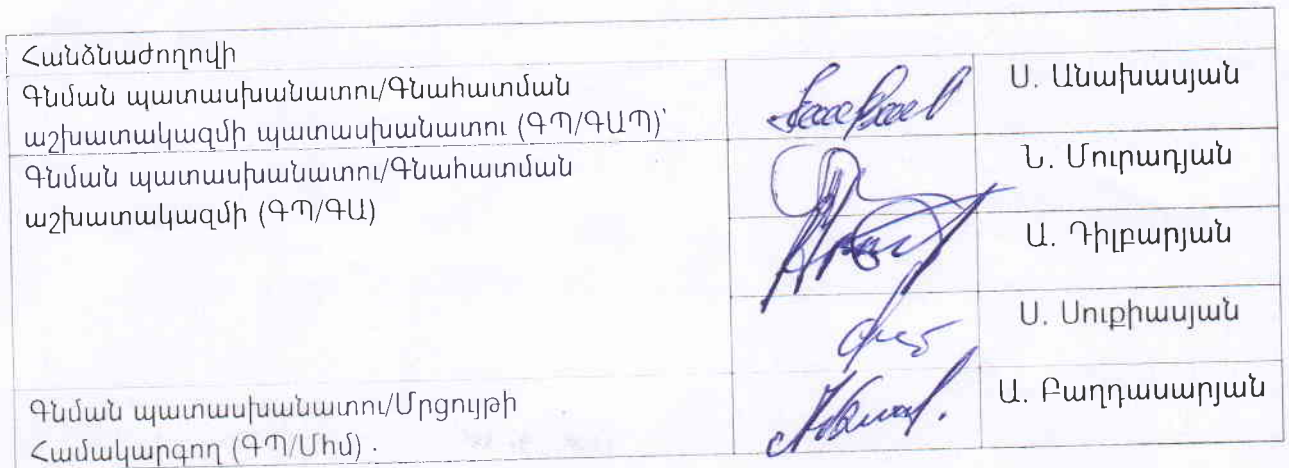 Հանձնաժողովի
Գնման պատասխանատու/Գնահատման
աշխատակազմի պատասխանատու (ԳՊ/ԳԱՊ)՝
Ս. Անախասյան
Գնման պատասխանատու/Գնահատման
աշխատակազմի (ԳՊ/ԳԱ)
Ն. Մուրադյան
Ա. Դիլբարյան
Ս. Սուքիասյան
Գնման պատասխանատու/Մրցույթի
Համակարգող (ԳՊ/Միմ) .
Ա. Բաղդասարյան